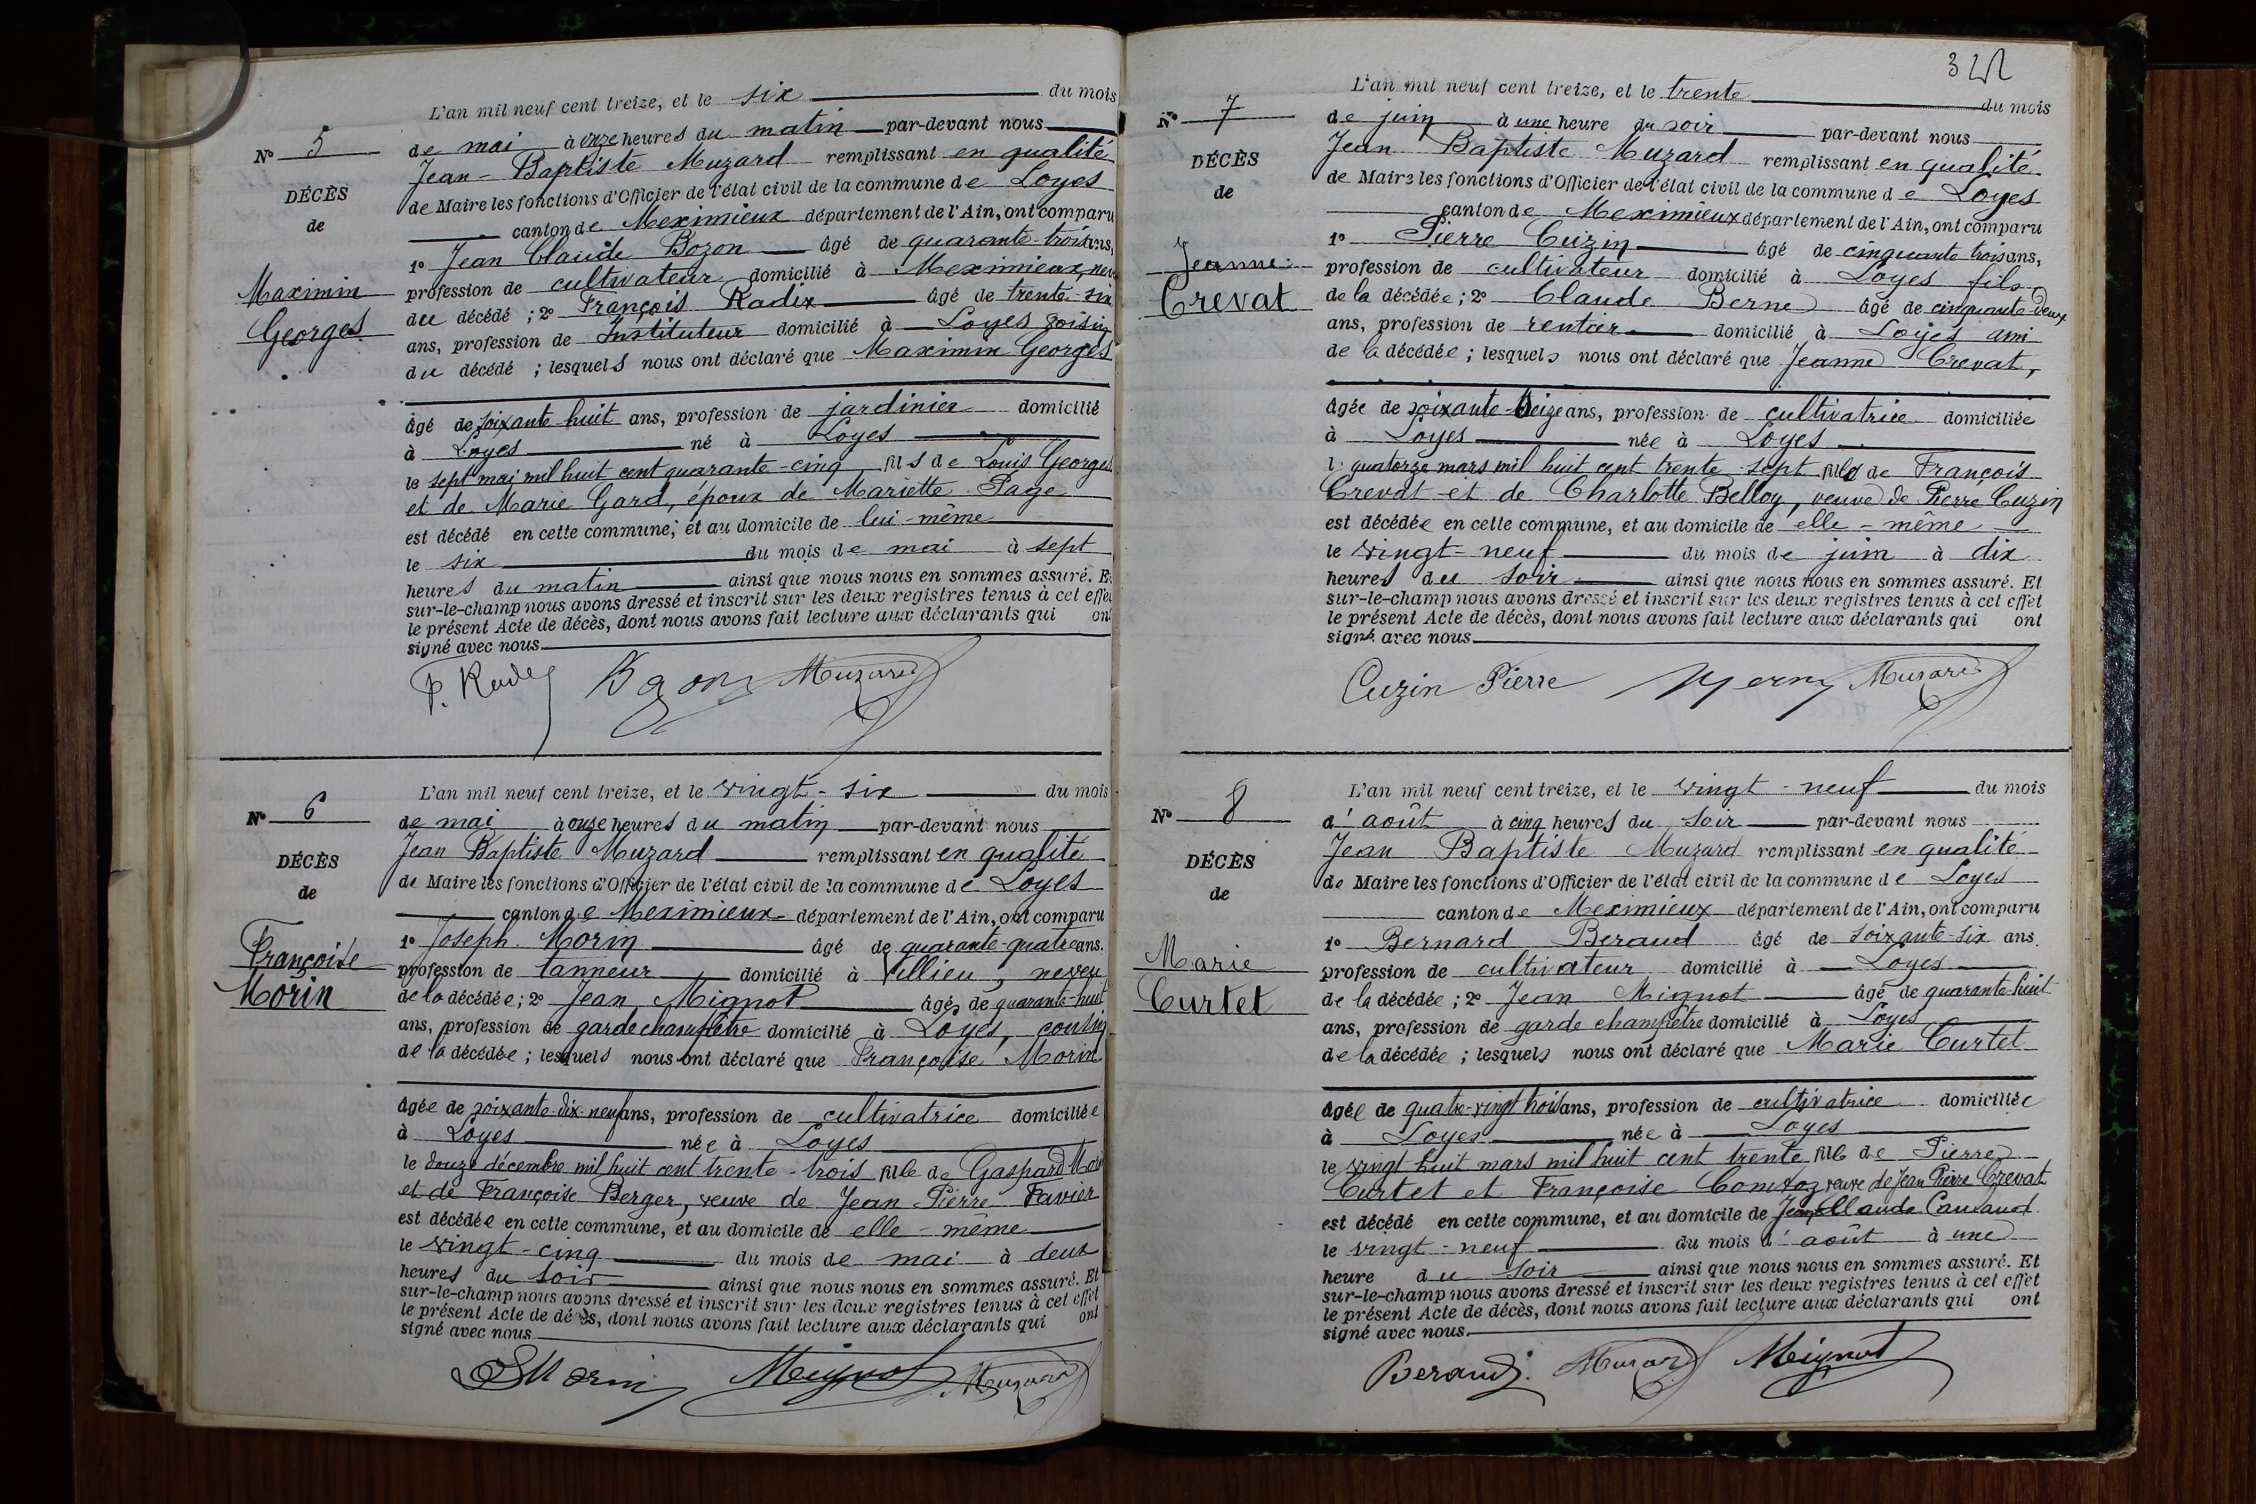 L'an mil neuf cent treize, et le six du mois
Nº 5
de mai à onze heures du matin par-devant nous
Jean-Baptiste Muzard remplissant en qualité
DÉCÈS
de Maire les fonctions d'Officier de l'état civil de la commune de Loyes
de
canton de Meximieux département de l'Ain, ont comparu
1º Jean Claude Bozon âgé de quarante-trois ans,
Maximin
profession de cultivateur domicilié à Meximieux, neveu
Georges
du décédé ; 2º François Radix âgé de trente-six
ans, profession de Instituteur domicilié à Loyes voisin
du décédé ; lesquels nous ont déclaré que Maximin Georges
âgé de soixante-huit ans, profession de jardinier domicilié
à Loyes né à Loyes
le sept mai mil huit cent quarante-cinq, fils de Louis Georges
et de Marie Gard, époux de Mariette Page
est décédé en cette commune, et au domicile de lui-même
le six du mois de mai à sept
heures du matin ainsi que nous nous en sommes assuré. Et
sur-le-champ nous avons dressé et inscrit sur les deux registres tenus à cet effet
le présent Acte de décès, dont nous avons fait lecture aux déclarants qui ont
signé avec nous
Muzard
L'an mil neuf cent treize, et le vingt-six du mois
Nº 6
de mai à onze heures du matin par-devant nous
Jean Baptiste Muzard remplissant en qualité
DÉCÈS
de Maire les fonctions d'Officier de l'état civil de la commune de Loyes
de
canton de Meximieux département de l'Ain, ont comparu
1º Joseph Morin âgé de quarante-quatre ans.
Françoise
profession de tanneur, domicilié à Villieu, neveu
Morin
de la décédée ; 2º Jean Mignot âgé de quarante-huit
ans, profession de garde champêtre domicilié à Loyes, cousin
de la décédée ; lesquels nous ont déclaré que Françoise Morin
âgée de soixante-dix-neuf ans, profession de cultivatrice domiciliée
à Loyes née à Loyes
le douze décembre mil huit cent trente-trois fille de Gaspard Morin
et de Françoise Berger, veuve de Jean Pierre Favier
est décédée en cette commune, et au domicile de elle-même
le vingt-cinq du mois de mai à deux
heures du soir ainsi que nous nous en sommes assuré. Et
sur-le-champ nous avons dressé et inscrit sur les deux registres tenus à cet effet
le présent Acte de décès, dont nous avons fait lecture aux déclarants qui ont
signé avec nous
Morin Meignot Muzard
L'an mil neuf cent treize, et le trente du mois
Nº 7
de juin à une heure du soir par-devant nous
Jean Baptiste Muzard remplissant en qualité
DÉCÈS
de Maire les fonctions d'Officier de l'état civil de la commune de Loyes
de
canton de Meximieux département de l'Ain, ont comparu
1º Pierre Cuzin âgé de cinquante trois ans,
Jeanne
profession de cultivateur domicilié à Loyes fils
Crevat
de la décédée ; 2º Claude Berne âgé de cinquante-deux
ans, profession de rentier domicilié à Loyes ami
de la décédée ; lesquels nous ont déclaré que Jeanne Crevat,
âgée de soixante-seize ans, profession de cultivatrice domiciliée
à Loyes née à Loyes
le quatorze mars mil huit cent trente-sept fille de François
Crevat et de Charlotte Belloy, veuve de Pierre Cuzin
est décédée en cette commune, et au domicile de elle-même
le vingt-neuf du mois de juin à dix
heures du soir ainsi que nous nous en sommes assuré. Et
sur-le-champ nous avons dressé et inscrit sur les deux registres tenus à cet effet
le présent Acte de décès, dont nous avons fait lecture aux déclarants qui ont
signé avec nous
Cuzin Pierre Berne Muzard
L'an mil neuf cent treize, et le vingt-neuf du mois
Nº 8
d'août à cinq heures du soir par-devant nous
Jean Baptiste Muzard remplissant en qualité
DÉCÈS
de Maire les fonctions d'Officier de l'état civil de la commune de Loyes
de
canton de Meximieux département de l'Ain, ont comparu
1º Bernard Beraud âgé de soixante-six ans.
Marie
profession de cultivateur domicilié à Loyes
Curtet
de la décédée ; 2º Jean Mignot âgé de quarante-huit
ans, profession de garde champêtre domicilié à Loyes
de la décédée ; lesquels nous ont déclaré que Marie Curtet
âgée de quatre-vingt trois ans, profession de cultivatrice domiciliée
à Loyes née à Loyes
le vingt huit mars mil huit cent trente fille de Pierre
Curtet et Françoise veuve de Jean Pierre Crevat
est décédé en cette commune, et au domicile de Jean Claude
le vingt-neuf du mois d'août à une
heure du soir ainsi que nous nous en sommes assuré. Et
sur-le-champ nous avons dressé et inscrit sur les deux registres tenus à cet effet
le présent Acte de décès, dont nous avons fait lecture aux déclarants qui ont
signé avec nous.
Beraud. Muzard Meignot